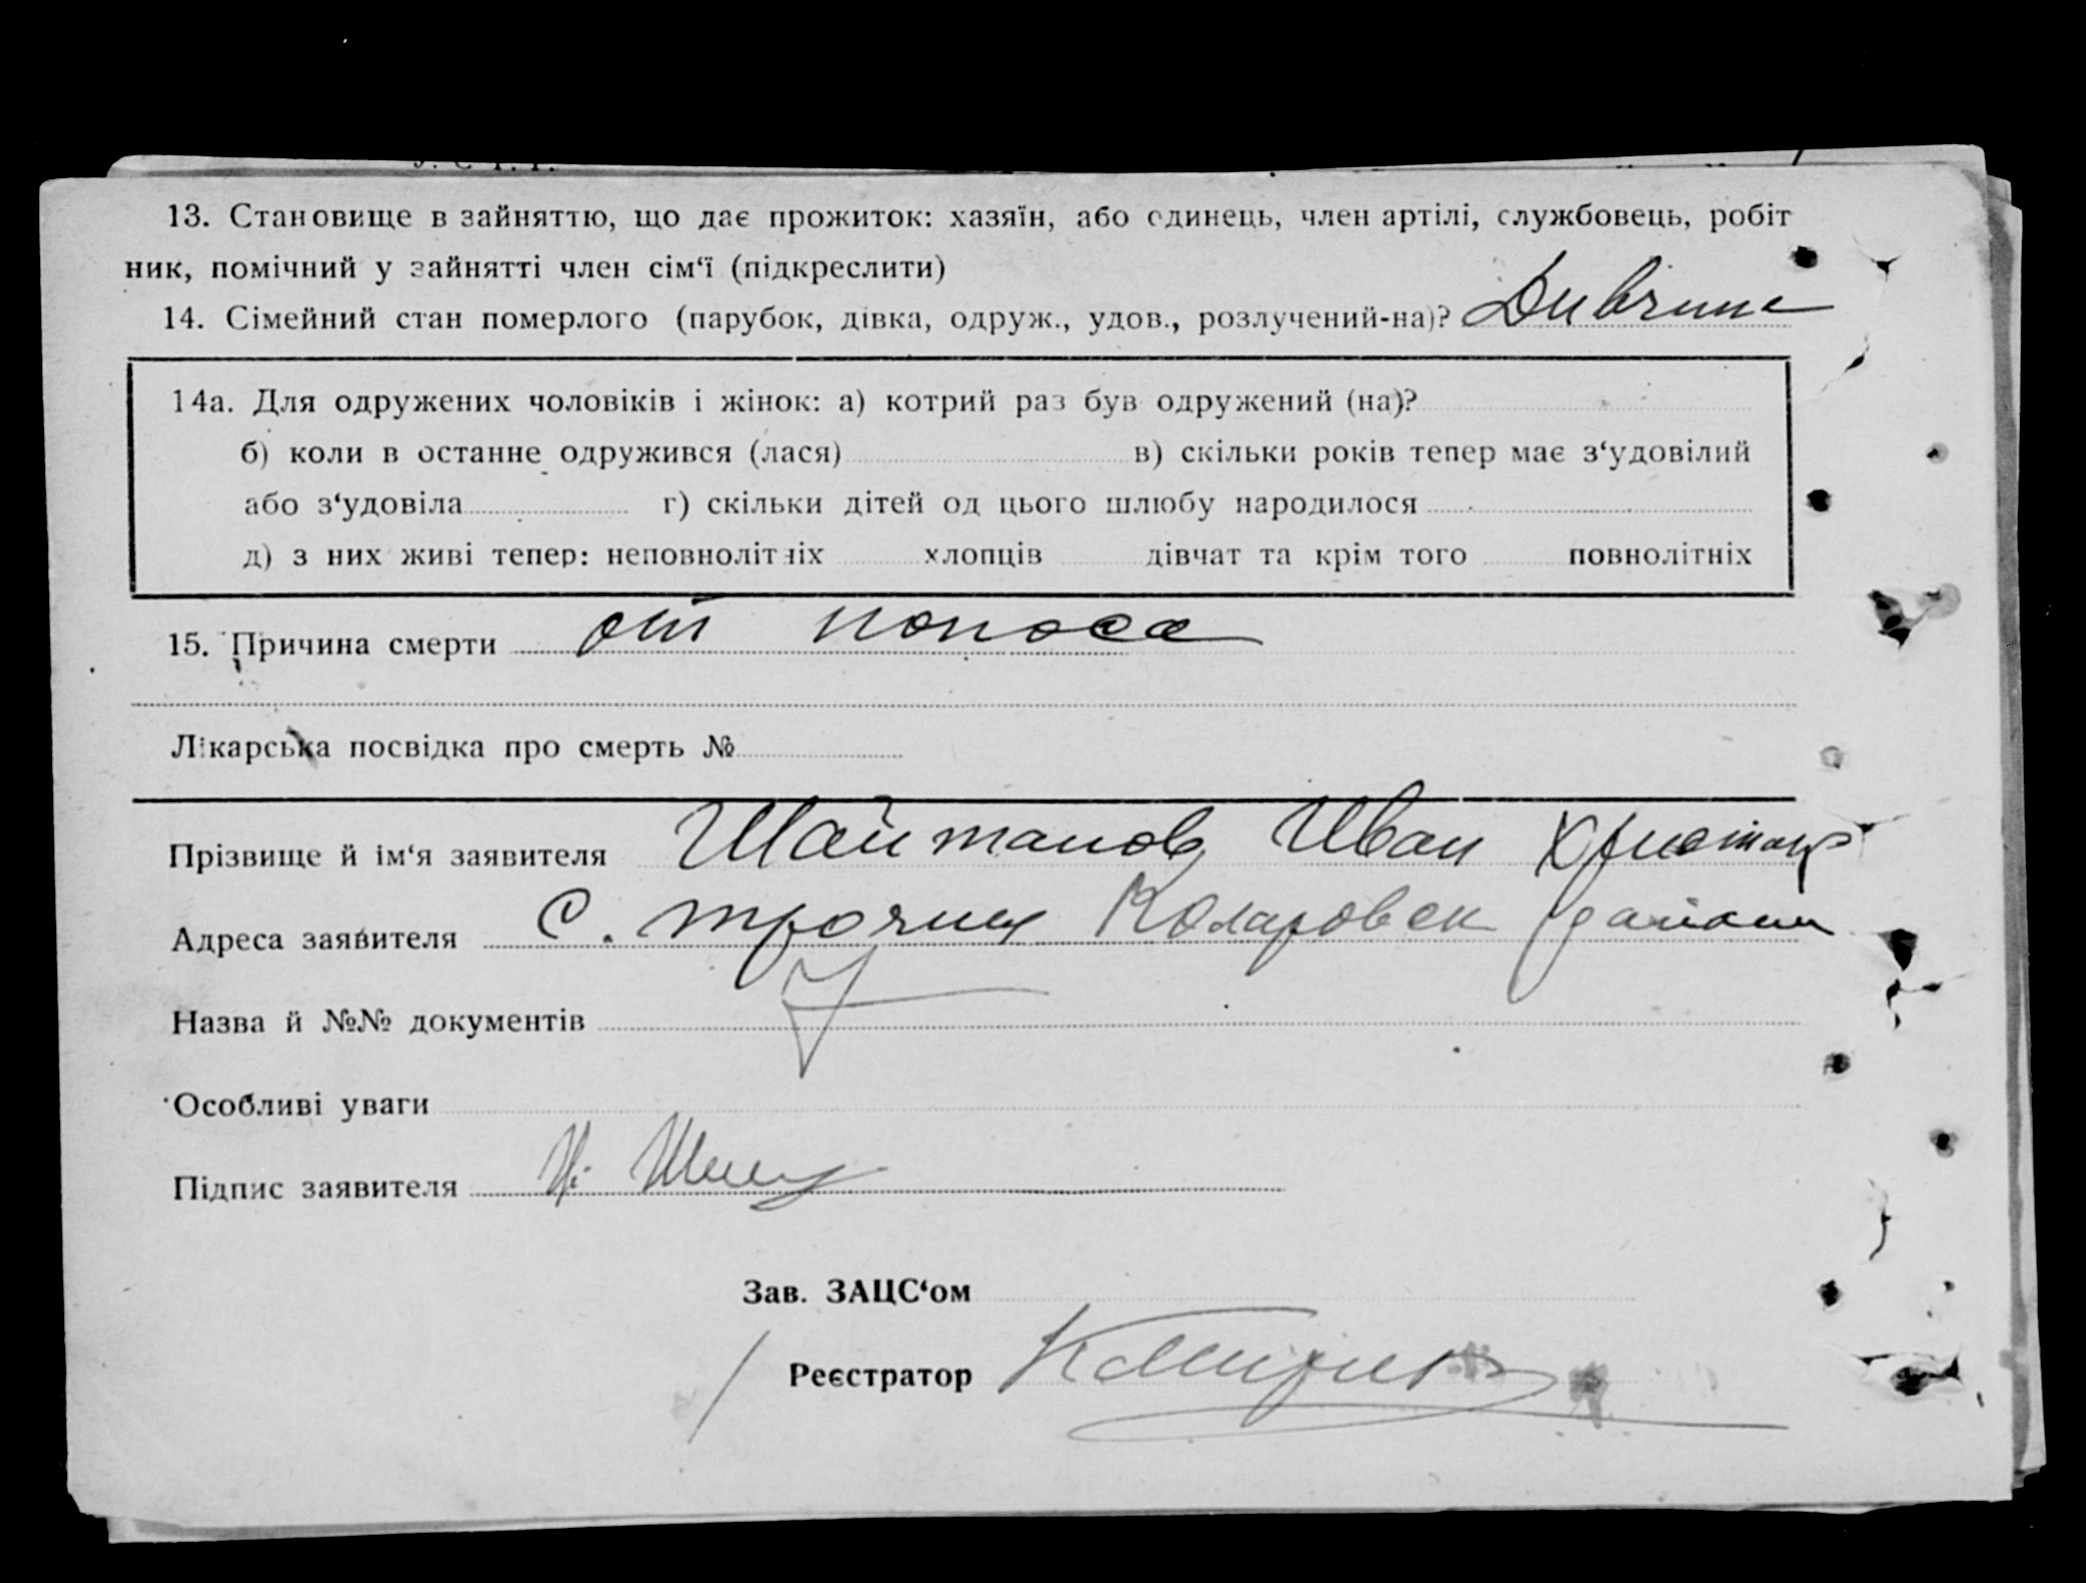 13. Становище в зайняттю, що дає прожиток: хазяїн, або одинець, член артілі, службовець, робіт
ник, помічний у зайнятті член сім‘ї (підкреслити)
14. Сімейний стан померлого (парубок, дівка, одруж., удов., розлучений-на)? Дивчина
14а. Для одружених чоловіків і жінок: а) котрий раз був одружений (на)?
б) коли в останнє одружився (лася) в) скільки років тепер має з‘удовілий
або з‘удовіла г) скільки дітей од цього шлюбу народилося
д) з них живі тепер: неповнолітніх хлопців дівчат та крім того повнолітніх
15. Причина смерти от поноса
Лікарська посвідка про смерть №
Прізвище й ім‘я заявителя Шайтанов Иван
Адреса заявителя с. Трояны Коларовск района
Назва й №№ документів
Особливі уваги
Підпис заявителя
Зав. ЗАЦС‘ом
Реєстратор